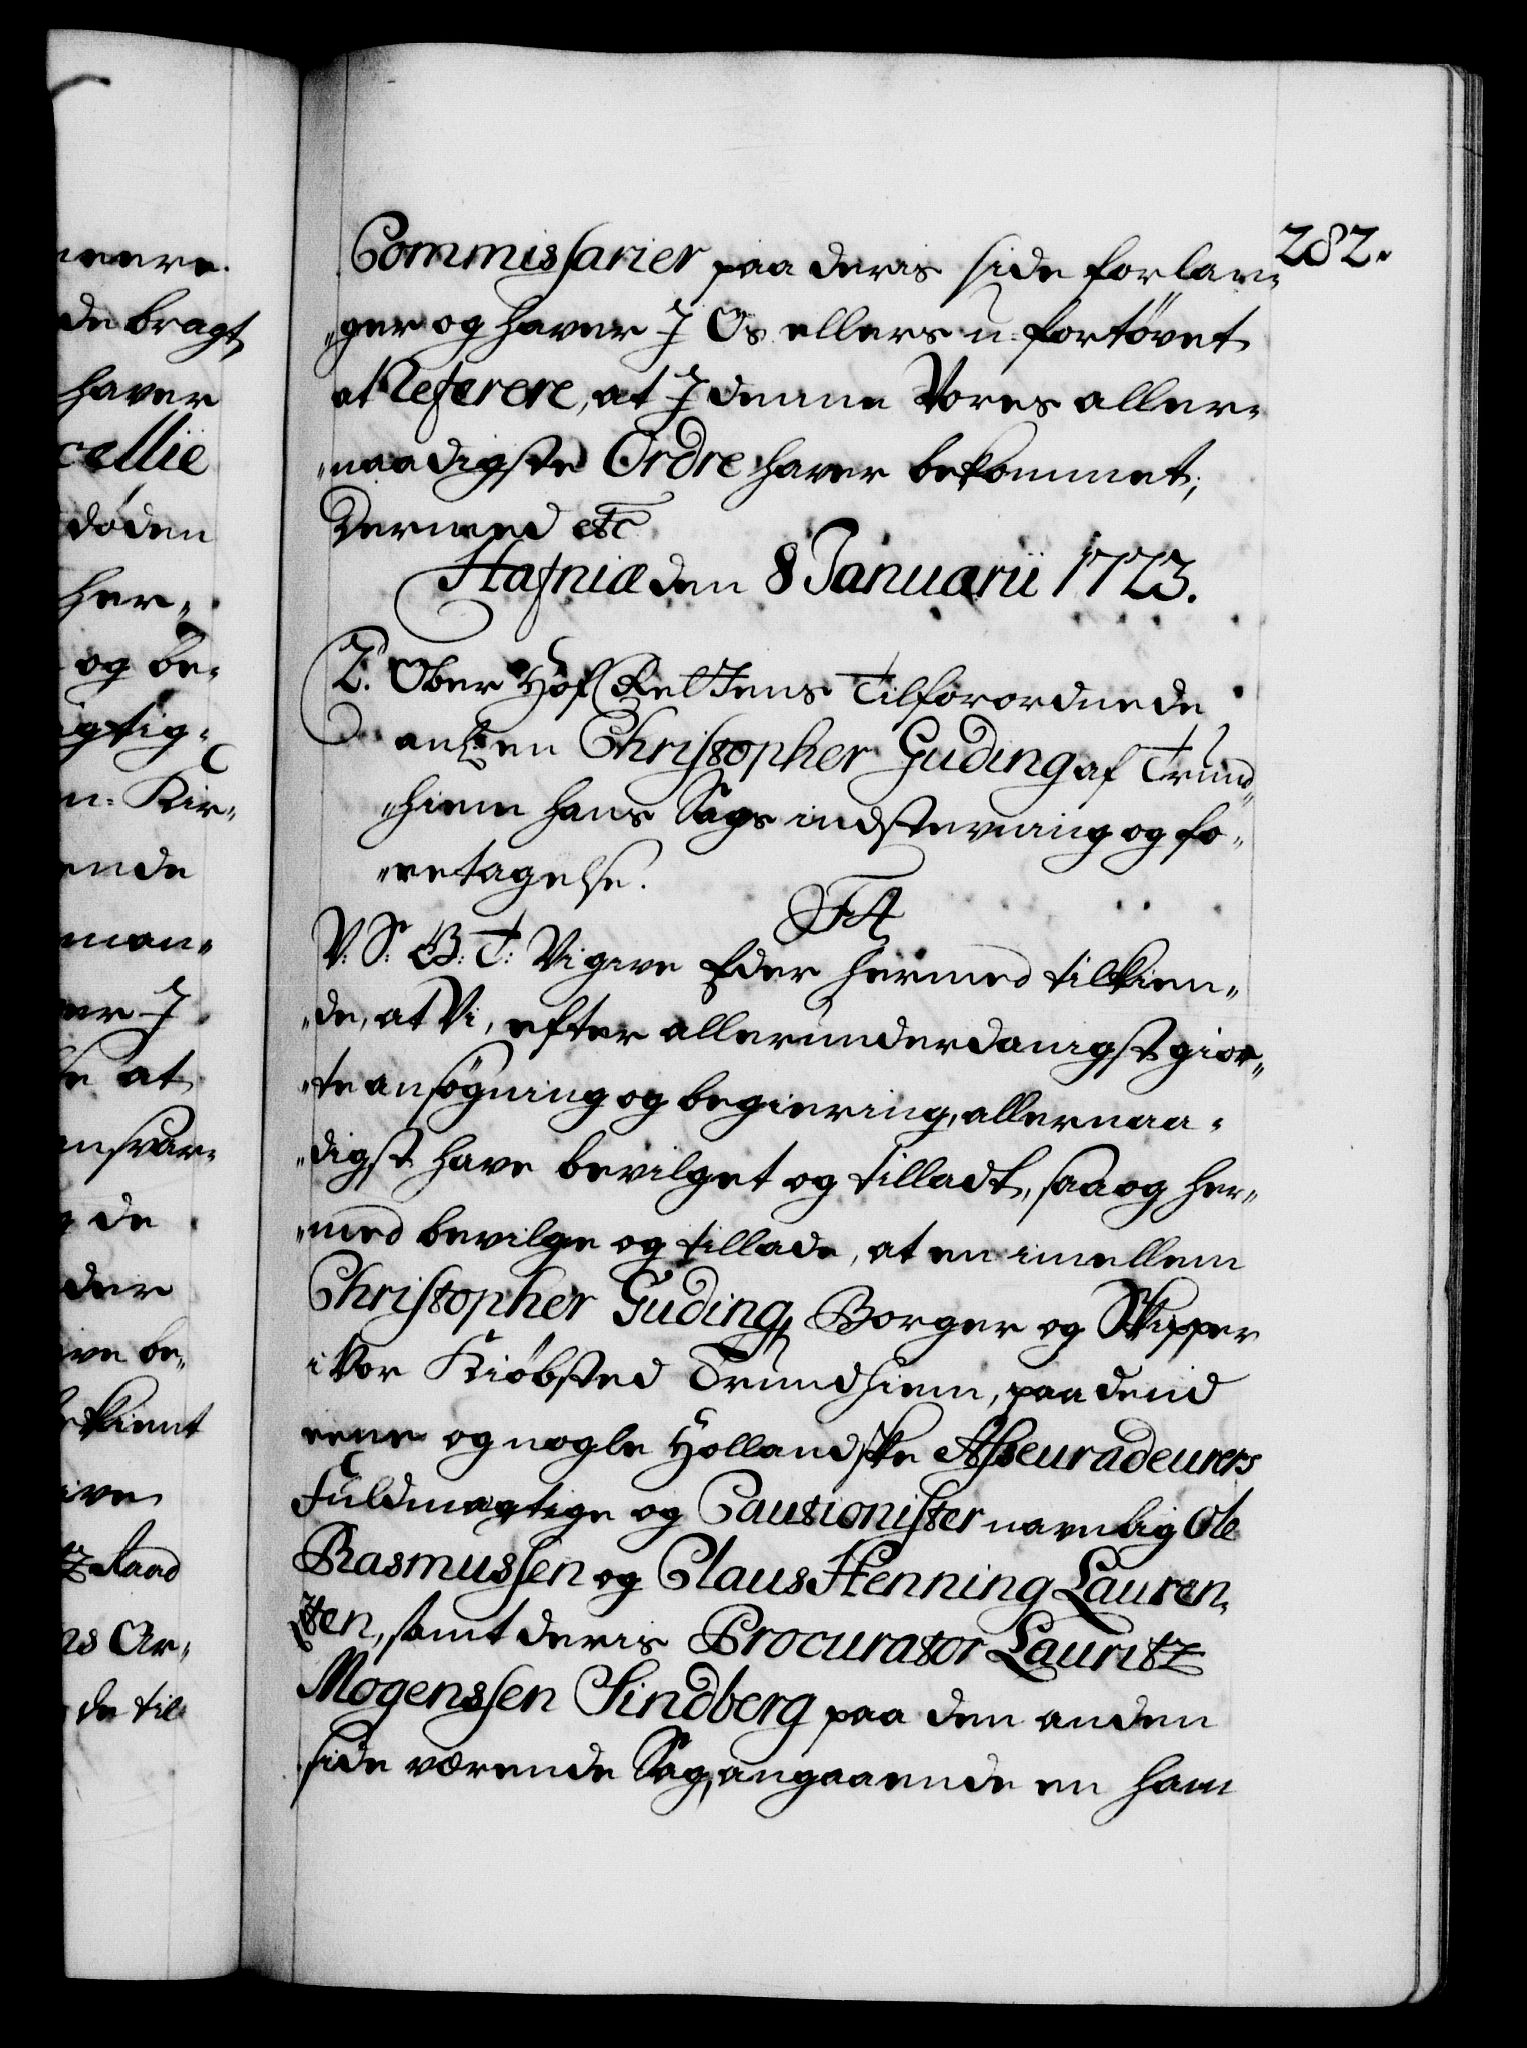 282.
Commissarier paa deris side forlan-
"ger og haver J Os ellers u-fortøvet
at Referere, at J denne Vores aller-
"naadigste Ordre haver bekommet,
Dermed etc
Hafniæ den 8 Januarii 1723.
T. Ober Hof Rettens Tilforordnede
anl: en Christopher Guding af Trund-
"hiem hans Sags indstevning og fo-
"retagelse.
F4
V: S: G: T: Vi give Eder hermed tilkien-
"de, at Vi, efter allerunderdanigst gior-
"te ansøgning og begiering, allernaa-
"digst have bevilget og tilladt, saa og her-
"med bevilge og tillade, at en imellem
Christopher Guding, Borger og Skipper
i Vor Kiøbsted Trundhiem, paa den
eene og nogle Hollandske Asseuradeurers
Fuldmægtige og Cautionister navnlig Ole
Rasmussen og Claus Henning Lauren-
tzen, samt deris Procurator Lauritz
Mogenssen Sindberg paa den anden
side værende Sag, angaaende en ham
de bragt
haver
cellie
døden
her-
og be-
igtig-
n. Kir-
ende
man-
er J
at
ansvar-
de
der
ive be-
ive
as Ar-
de til